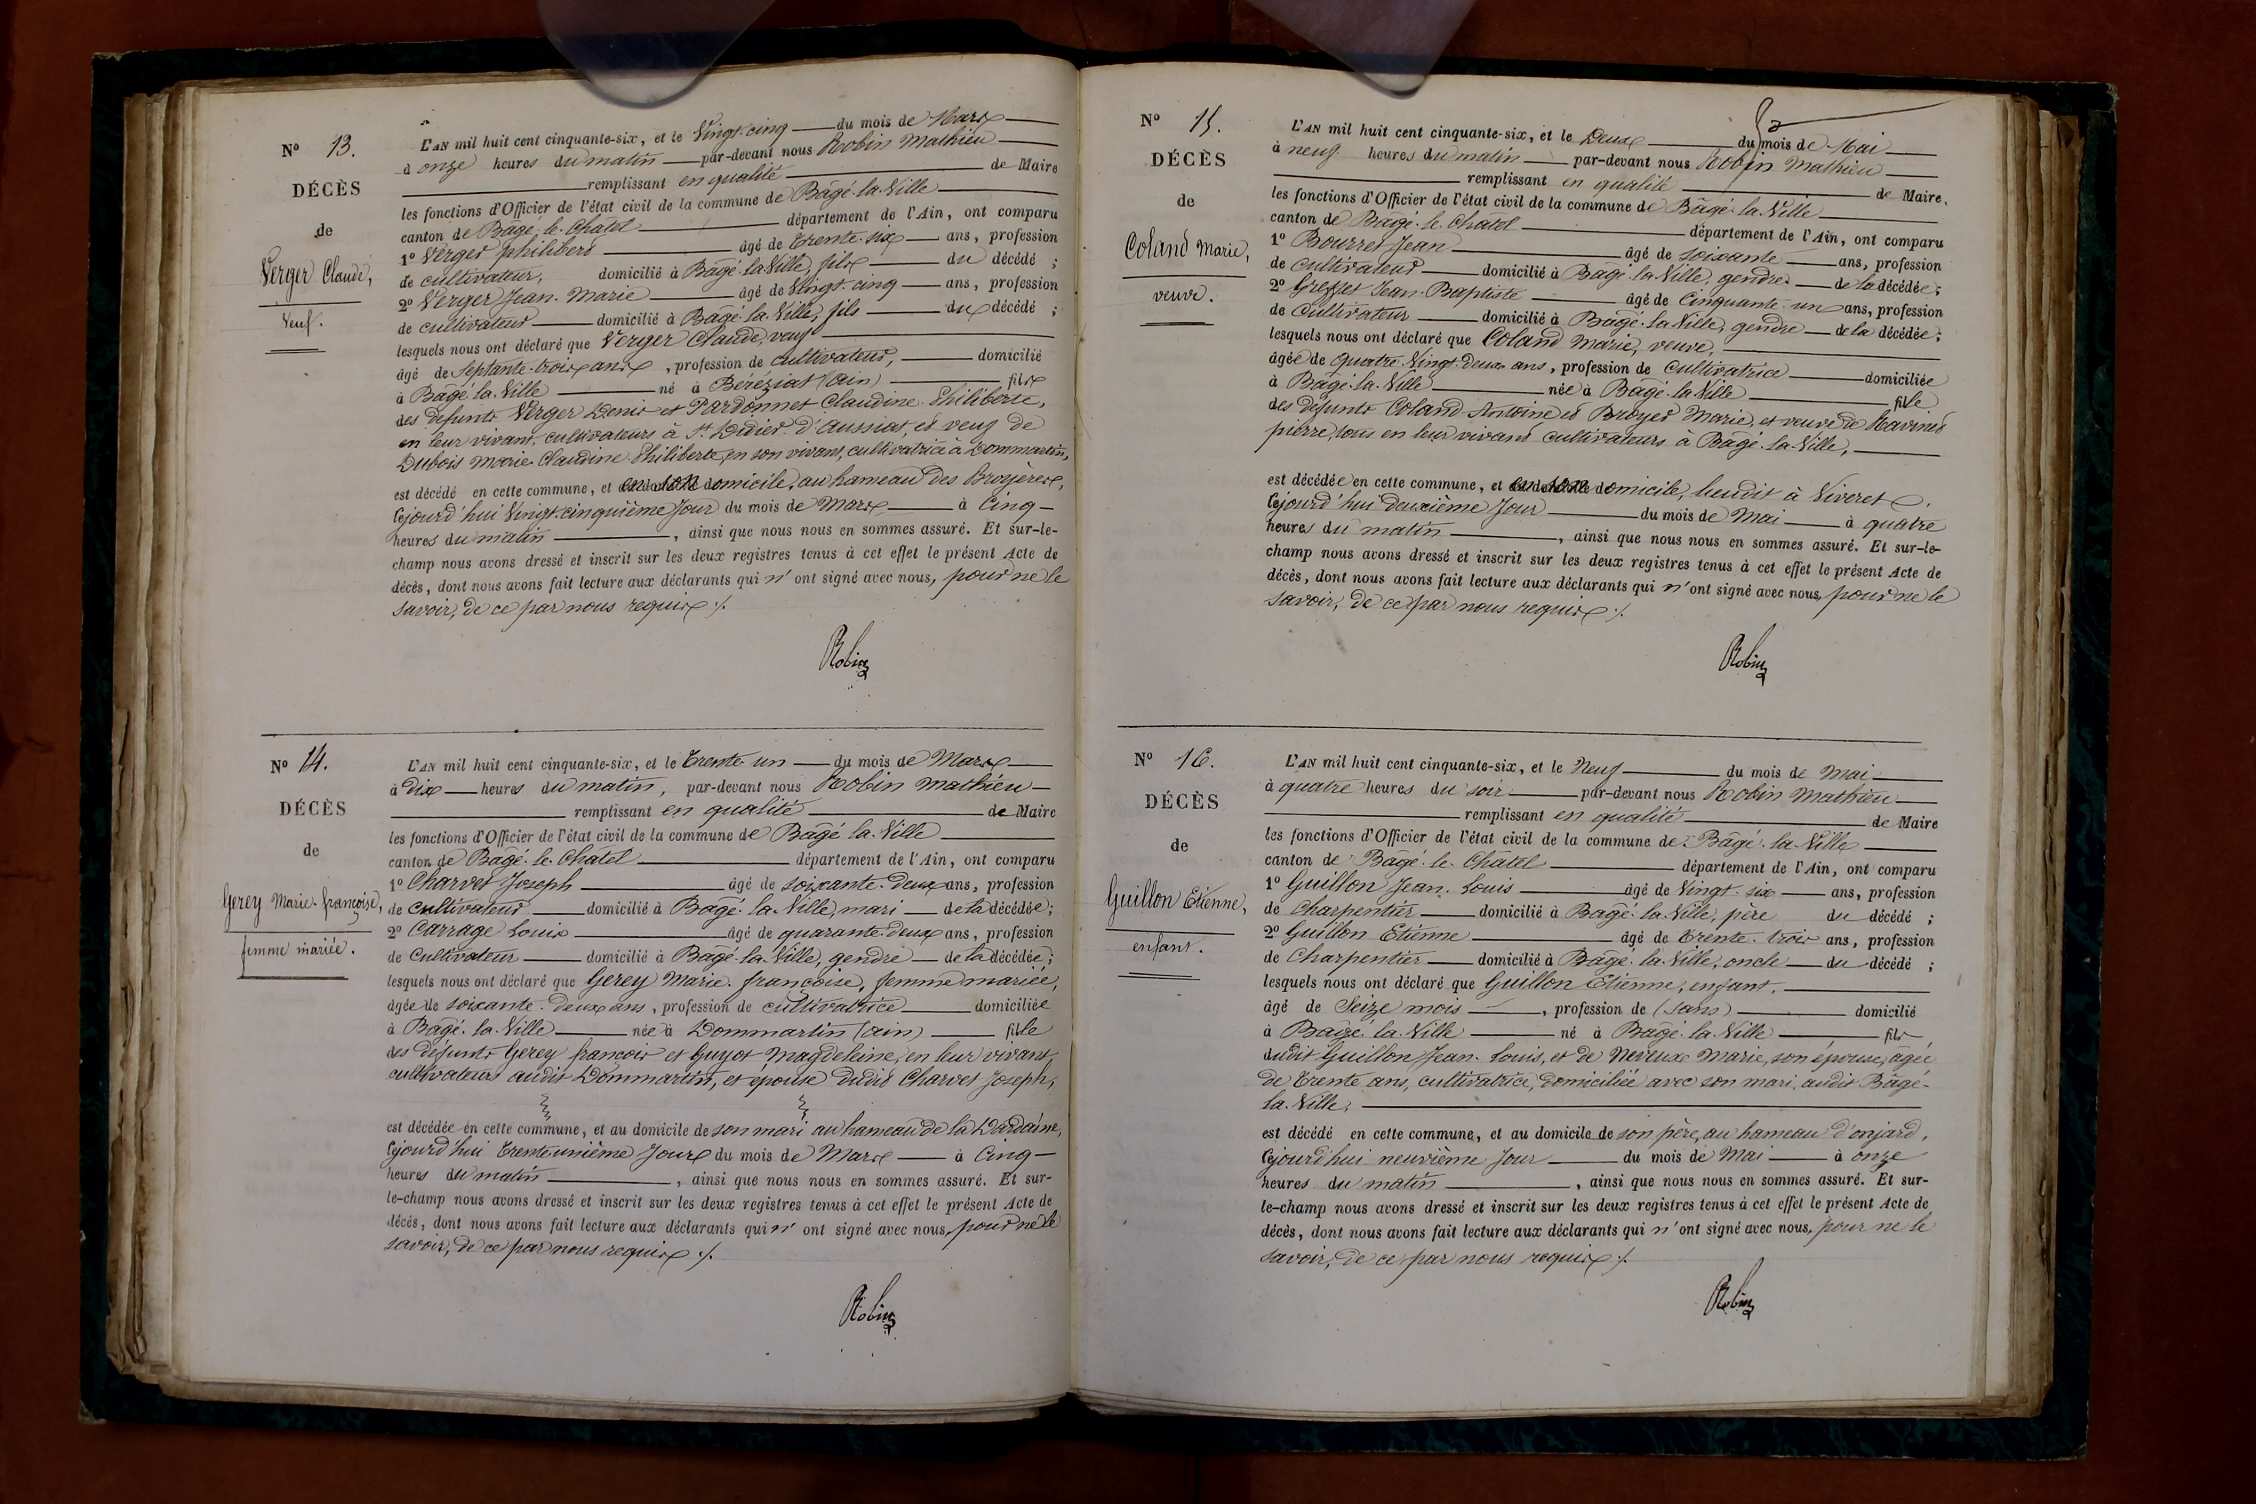 N° 13.
DÉCÈS
de
Verger Claude,
Veuf.
L'AN mil huit cent cinquante-six, et le Vingt-cinq du mois de Mars
à onze heures du matin par-devant nous Robin Mathieu
remplissant en qualité de Maire
les fonctions d'Officier de l'état civil de la commune de Bâgé-la-Ville
canton de Bâgé-le-Chatel département de l'Ain, ont comparu
1° Verger philibert âgé de trente-six ans, profession
de cultivateur, domicilié à Bâgé-la-Ville, fils du décédé ;
2° Verger Jean-Marie âgé de Vingt-cinq ans, profession
de cultivateur domicilié à Bâgé-la-Ville, fils du décédé ;
lesquels nous ont déclaré que Verger Claude, veuf
âgé de Septante-trois ans, profession de cultivateur, domicilié
à Bâgé-la-Ville né à Béréziat (ain) fils
des defunts Verger Denis et Pardonnet Claudine Philiberte,
en leur vivant, cultivateurs à St Didier-d'Aussiat, et veuf de
Dubois Marie-Claudine Philiberte, en son vivant, cultivatrice à Dommartin,
est décédé en cette commune, et en son domicile, au hameau des Broyères,
Cejourd'hui Vingt-cinquième Jour du mois de Mars à Cinq
heures du matin, ainsi que nous nous en sommes assuré. Et sur-le-
champ nous avons dressé et inscrit sur les deux registres tenus à cet effet le présent Acte de
décès, dont nous avons fait lecture aux déclarants qui n'ont signé avec nous, pour ne le
savoir, de ce par nous requis ./.
Robin
N° 14.
DÉCÈS
de
Gerey Marie-françoise,
femme mariée.
L'AN mil huit cent cinquante-six, et le trente un du mois de Mars
à dix heures du matin, par-devant nous Robin Mathieu
remplissant en qualité de Maire
les fonctions d'Officier de l'état civil de la commune de Bâgé la-Ville
canton de Bâgé-le-Chatel département de l'Ain, ont comparu
1° Charvet Joseph âgé de soixante-deux ans, profession
de cultivateur domicilié à Bâgé-la-Ville, mari de la décédée;
2° Carrage Louis âgé de quarante-deux ans, profession
de Cultivateur domicilié à Bâgé-la-Ville, gendre de la décédée;
lesquels nous ont déclaré que Gerey Marie-françoise, femme mariée,
âgée de soixante-deux ans, profession de cultivatrice domiciliée
à Bâgé-la-Ville née à Dommartin (ain) fille
des défunts Gerey francois et Guyot Magdeleine, en leur vivant,
cultivateurs audit Dommartin, et épouse dudit Charvet Joseph,
est décédée en cette commune, et au domicile de son mari au hameau de la Dardaine,
Cejourd'hui trenteunième Jour du mois de Mars à Cinq
heures du matin, ainsi que nous nous en sommes assuré. Et sur-
le-champ nous avons dressé et inscrit sur les deux registres tenus à cet effet le présent Acte de
décès, dont nous avons fait lecture aux déclarants qui n'ont signé avec nous, pour ne le
savoir, de ce par nous requis ./.
Robin
N° 15.
DÉCÈS
de
Coland Marie,
veuve.
L'AN mil huit cent cinquante-six, et le Deux du mois de Mai
à neuf heures du matin par-devant nous Robin Mathieu
remplissant en qualité de Maire.
les fonctions d'Officier de l'état civil de la commune de Bâgé-la-Ville
canton de Bâgé-le-Chatel département de l'Ain, ont comparu
1° Bourret Jean âgé de soixante ans, profession
de cultivateur domicilié à Bâgé-la-Ville, gendre de la décédée;
2° Greffet Jean-Baptiste âgé de Cinquante-un ans, profession
de Cultivateur domicilié à Bâgé-la-Ville, gendre de la décédée;
lesquels nous ont déclaré que Coland Marie, veuve,
âgée de quatre-Vingt-deux ans, profession de cultivatrice domiciliée
à Bâgé-la-Ville née à Bâgé-la-Ville fille
des défunts Coland Antoine et Broyer Marie, et veuve de
pierre, tous en leur vivant cultivateurs à Bâgé-la-Ville,
est décédée en cette commune, et en son domicile, lieudit à Viveret,
Cejourd'hui deuxième Jour du mois de Mai à quatre
heures du matin, ainsi que nous nous en sommes assuré. Et sur-le-
champ nous avons dressé et inscrit sur les deux registres tenus à cet effet le présent Acte de
décès, dont nous avons fait lecture aux déclarants qui n'ont signé avec nous, pour ne le
savoir, de ce par nous requis ./.
Robin
N° 16.
DÉCÈS
de
Guillon Etienne,
enfant.
L'AN mil huit cent cinquante-six, et le Neuf du mois de Mai
à quatre heures du soir par-devant nous Robin Mathieu
remplissant en qualité de Maire
les fonctions d'Officier de l'état civil de la commune de Bâgé-la-Ville
canton de Bâgé-le-Châtel département de l'Ain, ont comparu
1° Guillon Jean-Louis âgé de Vingt-six ans, profession
de Charpentier domicilié à Bâgé-la-Ville, père du décédé ;
2° Guillon Etienne âgé de trente-trois ans, profession
de Charpentier domicilié à Bâgé-la-Ville, oncle du décédé ;
lesquels nous ont déclaré que Guillon Etienne, enfant,
âgé de Seize mois, profession de (sans) domicilié
à Bâgé-la-Ville né à Bâgé-la-Ville fils
dudit Guillon Jean-Louis, et de Neveux Marie, son épouse, âgée
de trente ans, cultivatrice, domiciliée avec son mari, audit Bâgé-
la-Ville,
est décédé en cette commune, et au domicile de son père, au hameau d'onjard,
Cejourd'hui neuvième Jour du mois de Mai à onze
heures du matin, ainsi que nous nous en sommes assuré. Et sur-
le-champ nous avons dressé et inscrit sur les deux registres tenus à cet effet le présent Acte de
décès, dont nous avons fait lecture aux déclarants qui n'ont signé avec nous, pour ne le
savoir, de ce par nous requis ./.
Robin